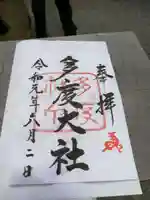 奉拝
多度大社
令和元年六月二日